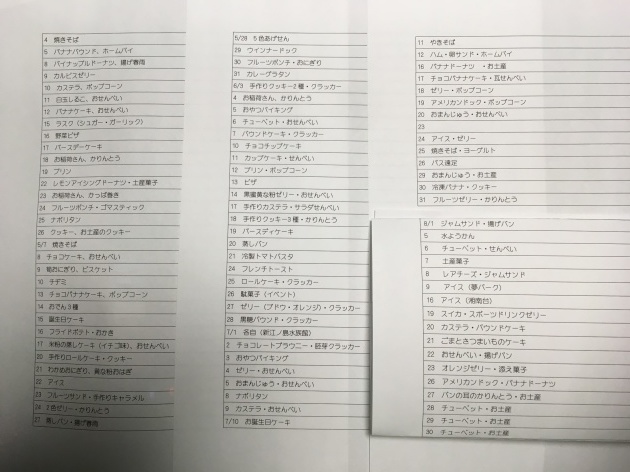 4 焼きそば
5 バナナパウンド、ホームパイ
8 パイナップルドーナツ、揚げ春雨
9 カルピスゼリー
10 カステラ、ポップコーン
11 白玉しるこ、おせんべい
12 バナナケーキ、おせんべい
15 ラスク（シュガー・ガーリック）
16 野菜ピザ
17 バースデーケーキ
18 お稲荷さん、かりんとう
19 プリン
22 レモンアイシングドーナツ・土産菓子
23 お稲荷さん、かっぱ巻き
24 フルーツポンチ・ゴマスティック
25 ナポリタン
26 クッキー、お土産のクッキー
5/7 焼きそば
8 チョコケーキ、おせんべい
9 菊おにぎり、ビスケット
10 チヂミ
13 チョコバナナケーキ、ポップコーン
14 おでん３種
15 誕生日ケーキ
16 フライドポテト・おかき
17 米粉の蒸しケーキ（イチゴ味）、おせんべい
20 手作りロールケーキ・クッキー
21 わかめおにぎり、黄な粉おはぎ
22 アイス
23 フルーツサンド・手作りキャラメル
24 ２色ゼリー・かりんとう
27 蒸しパン・揚げ春雨
5/28 ５色あげせん
29 ウインナードック
30 フルーツポンチ・おにぎり
31 カレーグラタン
6/3 手作りクッキー２種・クラッカー
4 お稲荷さん、かりんとう
5 おやつバイキング
6 チューペット・おせんべい
7 パウンドケーキ・クラッカー
10 チョコチップケーキ
11 カップケーキ・せんべい
12 プリン・ポップコーン
13 ピザ
14 黒蜜黄な粉ゼリー・おせんべい
17 手作りカステラ・サラダせんべい
18 手作りクッキー３種・かりんとう
19 バースディケーキ
20 蒸しパン
21 冷製トマトパスタ
24 フレンチトースト
25 ロールケーキ・クラッカー
26 駄菓子（イベント）
27 ゼリー（ブドウ・オレンジ）・クラッカー
28 黒糖パウンド・クラッカー
7/1 各自（新江ノ島水族館）
2 チョコレートブラウニー・胚芽クラッカー
3 おやつバイキング
4 ゼリー・おせんべい
5 おまんじゅう・おせんべい
8 ナポリタン
9 カステラ・おせんべい
7/10 お誕生日ケーキ
11 やきそば
12 ハム・卵サンド・ホームパイ
16 バナナドーナツ ・お土産
17 チョコバナナケーキ・瓦せんべい
18 ゼリー・ポップコーン
19 アメリカンドック・ポップコーン
20 おまんじゅう・おせんべい
23
24 アイス・ゼリー
25 焼きそば・ヨーグルト
26 バス遠足
29 おまんじゅう・お土産
30 冷凍バナナ・クッキー
31 フルーツゼリー・かりんとう
8/1 ジャムサンド・揚げパン
5 水ようかん
6 チューペット・せんべい
7 土産菓子
8 レアチーズ・ジャムサンド
9 アイス（夢パーク）
16 アイス（湘南台）
19 スイカ・スポーツドリンクゼリー
20 カステラ・パウンドケーキ
21 ごまとさつまいものケーキ
22 おせんべい・揚げパン
23 オレンジゼリー・添え菓子
26 アメリカンドック・バナナドーナツ
27 パンの耳のかりんとう・お土産
28 チューペット・お土産
29 チューペット・お土産
30 チューペット・お土産